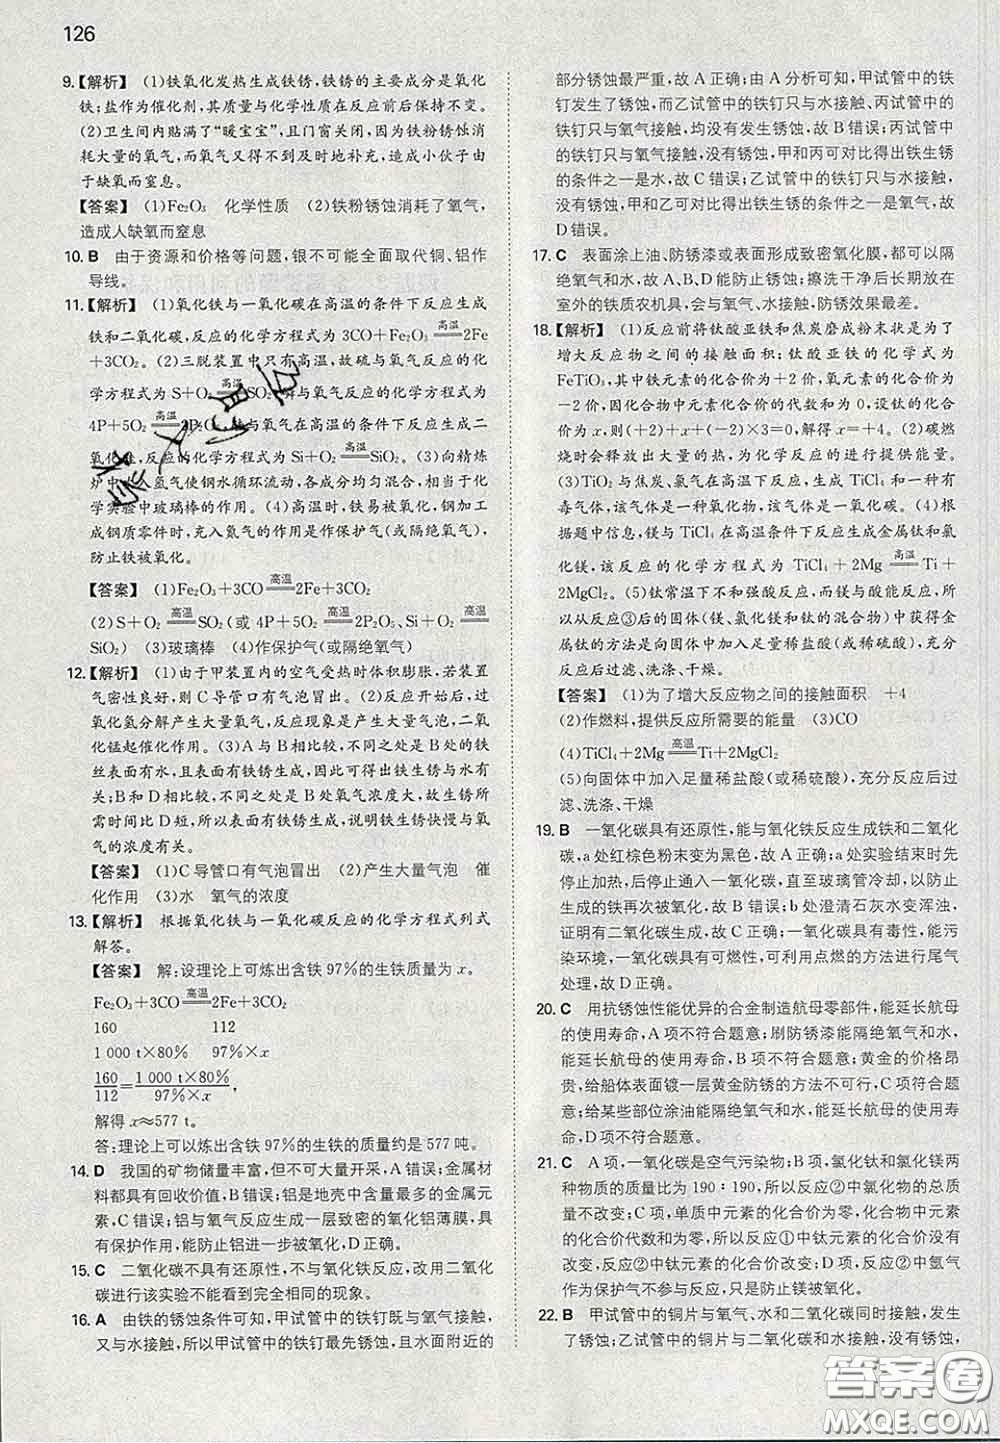 126
9.【解析】 (1)铁氧化发热生成铁锈,铁锈的主要成分是氧化
铁;盐作为催化剂,其质量与化学性质在反应前后保持不变。
(2)卫生间内贴满了“暖宝宝”,且门窗关闭,因为铁粉锈蚀消
耗大量的氧气,而氧气又得不到及时地补充,造成小伙子由
于缺氧而窒息。
【答案】 (1)Fe₂O₃ 化学性质 (2)铁粉锈蚀消耗了氧气,
造成人缺氧而窒息
10. B 由于资源和价格等问题,银不可能全面取代铜、铝作
导线。
11.【解析】 (1)氧化铁与一氧化碳在高温的条件下反应生成
铁和二氧化碳,反应的化学方程式为 3CO+Fe₂O₃ 高温 2Fe
+3CO₂。(2)三脱装置中只有高温,故硫与氧气反应的化
学方程式为 S+O₂ 高温 SO₂,磷与氧气反应的化学方程式为
4P+5O₂ 高温 2P₂O₅,硅与氧气在高温的条件下反应生成二
氧化硅,反应的化学方程式为 Si+O₂ 高温 SiO₂。(3)向精炼
炉中吹入氩气使钢水循环流动,各成分均匀混合,相当于化学
实验中搅拌玻璃棒的作用。(4)高温时,铁易被氧化,钢水加工
成钢质零件时,充入氮气的作用是作保护气(或隔绝氧气),
防止铁被氧化。
【答案】 (1)Fe₂O₃+3CO 高温 2Fe+3CO₂
(2)S+O₂ 高温 SO₂(或 4P+5O₂ 高温 2P₂O₅、Si+O₂ 高温
SiO₂) (3)玻璃棒 (4)作保护气(或隔绝氧气)
12.【解析】 (1)由于甲装置内的空气受热时体积膨胀,若装置
气密性良好,则 C 导管口有气泡冒出。(2)反应开始后,过
氧化氢分解产生大量氧气,反应现象是产生大量气泡,二氧
化锰起催化作用。(3)A 与 B 相比较,不同之处是 B 的铁
丝表面有水,出现的不同现象是有铁锈生成,说明铁生锈与水有
关;B 和 D 相比较,不同之处是 B 处氧气浓度大,生锈所
需时间比 D 短,所以表面有铁锈生成,说明铁生锈快慢与氧
气的浓度有关。
【答案】 (1)C 导管口有气泡冒出 (2)产生大量气泡 催
化作用 (3)水 氧气的浓度
13.【解析】 根据氧化铁与一氧化碳反应的化学方程式列式
解答。
【答案】 解:设理论上可炼出含铁 97%的生铁质量为 x。
Fe₂O₃+3CO 高温 2Fe+3CO₂
160 112
1 000 t×80% 97%×x
160/112=1 000 t×80%/97%×x
解得 x≈577 t。
答:理论上可以炼出含铁 97%的生铁的质量约是 577 吨。
14. D 我国的矿物储量丰富,但不可大量开采,A 错误;金属材
料都具有回收价值,B 错误;铝是地壳中含量最多的金属元
素,C 错误;铝与氧气反应生成一层致密的氧化铝薄膜,具
有保护作用,能防止铝进一步被氧化,D正确。
15. C 二氧化碳不具有还原性,不与氧化铁反应,改用二氧化
碳进行该实验不能看到完全相同的现象。
16. A 由铁的锈蚀条件可知,甲试管中的铁钉既与氧气接触,
又与水接触,所以甲试管中的铁钉最先锈蚀,且水面附近的
部分锈蚀最严重,故 A 正确;由 A 分析可知,甲试管中的铁
钉发生了锈蚀,而乙试管中的铁钉只与水接触、丙试管中的
铁钉只与氧气接触,均没有发生锈蚀,故 B 错误;丙试管中
的铁钉只与氧气接触,没有锈蚀,甲和丙可对比得出铁生锈
的条件之一是水,故 C 错误;乙试管中的铁钉只与水接触,
没有锈蚀,甲和乙可对比得出铁生锈的条件之一是氧气,故
D 错误。
17. C 表面涂上油、防锈漆或表面形成致密氧化膜,都可以隔
绝氧气和水,故 A、B、D 能防止锈蚀;擦洗干净后长期放在
室外的铁质农机具,会与氧气、水接触,防锈效果最差。
18.【解析】 (1)反应前将钛酸亚铁和焦炭磨成粉末状是为了
增大反应物之间的接触面积;钛酸亚铁的化学式为
FeTiO₃,其中铁元素的化合价为+2 价,氧元素的化合价为
−2 价,因化合物中元素化合价的代数和为 0,设钛的化合
价为 x,则(+2)+x+(−2)×3=0,解得 x=+4。(2)碳燃
烧时会释放出大量的热,为化学反应提供所需的能量。
(3)TiO₂ 与焦炭、氯气在高温下反应,生成 TiCl₄ 和一种有
毒气体,该气体是一种氧化物,该气体是一氧化碳。(4)根
据题中信息,镁与 TiCl₄ 在高温条件下反应生成金属钛和氯
化镁,该反应的化学方程式为 TiCl₄+2Mg 高温 Ti+
2MgCl₂。(5)钛常温下不和强酸反应,而镁与酸能反应,所
以从反应③后的固体(镁、氯化镁和钛的混合物)中获得金
属钛的方法是向固体中加入足量稀盐酸(或稀硫酸),充分
反应后过滤、洗涤、干燥。
【答案】 (1)为了增大反应物之间的接触面积 +4
(2)作燃料,提供反应所需要的能量 (3)CO
(4)TiCl₄+2Mg 高温 Ti+2MgCl₂
(5)向固体中加入足量稀盐酸(或稀硫酸),充分反应后过
滤、洗涤、干燥
19. B 一氧化碳具有还原性,能与氧化铁反应生成铁和二氧化
碳,a 处红棕色粉末变为黑色,故 A 正确;a 处实验结束时先
停止加热,后停止通入一氧化碳,直至玻璃管冷却,以防止
生成的铁再次被氧化,故 B 错误;b 处澄清石灰水变浑浊,
证明有二氧化碳生成,故 C 正确;一氧化碳具有毒性,能污
染环境,一氧化碳具有可燃性,可利用点燃的方法进行尾气
处理,故 D 正确。
20. C 用抗锈蚀性能优异的合金制造航母零部件,能延长航母
的使用寿命,A 项不符合题意;刷防锈漆能隔绝氧气和水,
能延长航母的使用寿命,B 项不符合题意;黄金的价格昂
贵,给船体表面镀一层黄金防锈的方法不可行,C 项符合题
意;给某些部位涂油能隔绝氧气和水,能延长航母的使用寿
命,D项不符合题意。
21. C A 项,一氧化碳是空气污染物;B 项,氯化钛和氯化镁两
种物质的质量比为 190∶190,所以反应②中氯化物的总质
量不改变;C 项,单质中元素的化合价为零,化合物中元素
的化合价代数和为零,所以反应①中钛元素的化合价不变,
反应②中钛元素的化合价改变;D 项,反应②中氩气
作为保护气不参与反应,只是防止镁被氧化。
22. B 甲试管中的铜片与氧气、水和二氧化碳同时接触,发生
了锈蚀;乙试管中的铜片与二氧化碳和水接触,没有锈蚀,
答案圈
MXQE.COM